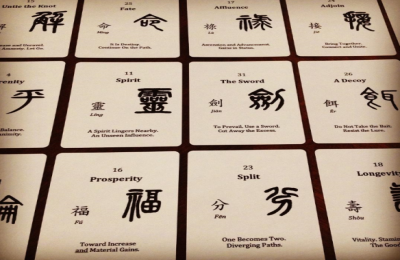 Unite the Knot
解
25
Fate
命
命
Ming
It is Destiny.
Continue On the Path.
17
Affluence
祿
祿
Lù
Ascension and Advancement.
Gains in Status.
24
Adjoin
接
接
Bring Together.
Connect and Meet.
Serenity
平
Balance.
11
Spirit
靈
靈
Líng
A Spirit Lingers Nearby.
An Unseen Influence.
31
The Sword
劍
劍
Jiàn
To Prevail, Use a Sword.
Cut Away the Excess.
26
A Decoy
餌
餌
Ěr
Do Not Take the Bait.
Resist the Lure.
16
Prosperity
福
福
Fú
Toward Increase
and Material Gains.
23
Split
分
分
Fēn
One Becomes Two.
Diverging Paths.
18
Longevity
壽
Shòu
Vitality. Stamina.